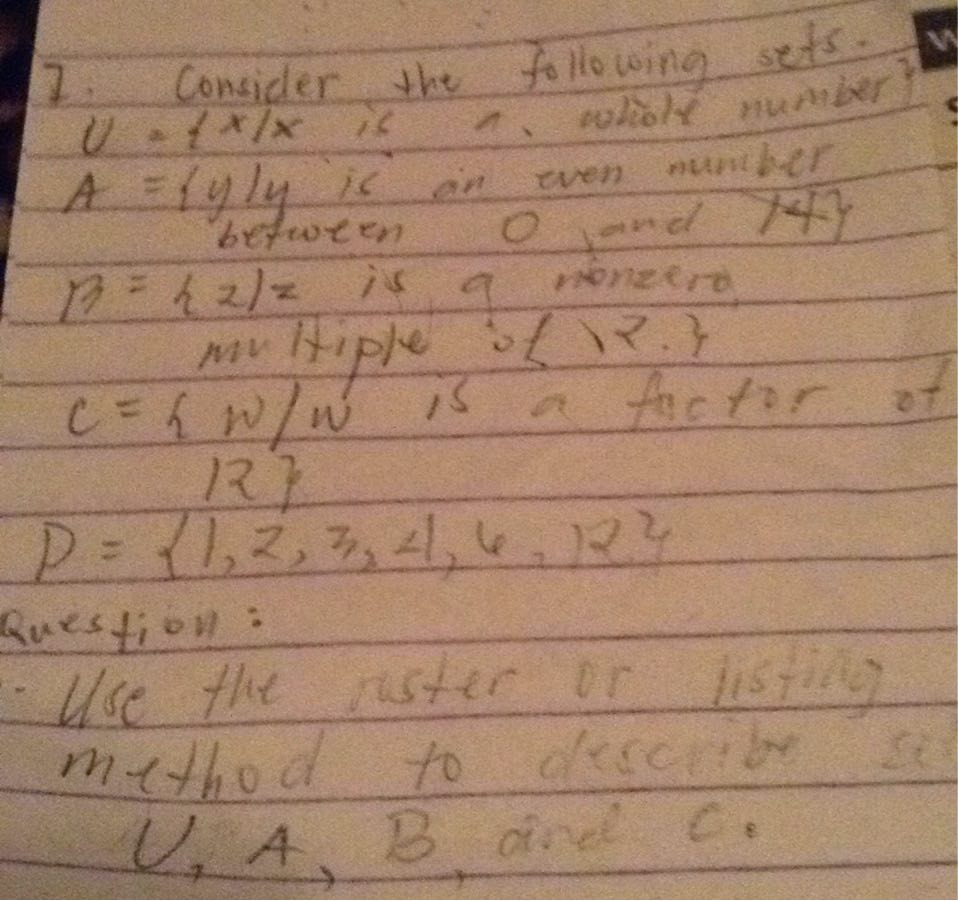 7. Consider the following sets.
U = {x/x is a whole number}
A = {y/y is an even number
between 0 and 14}
B = {z/z is a nonzero
multiple of 12.}
C = {w/w is a factor of
12}
D = {1, 2, 3, 4, 6, 12}
Question:
- Use the roster or listing
method to describe set
U, A, B, and C.
W
S